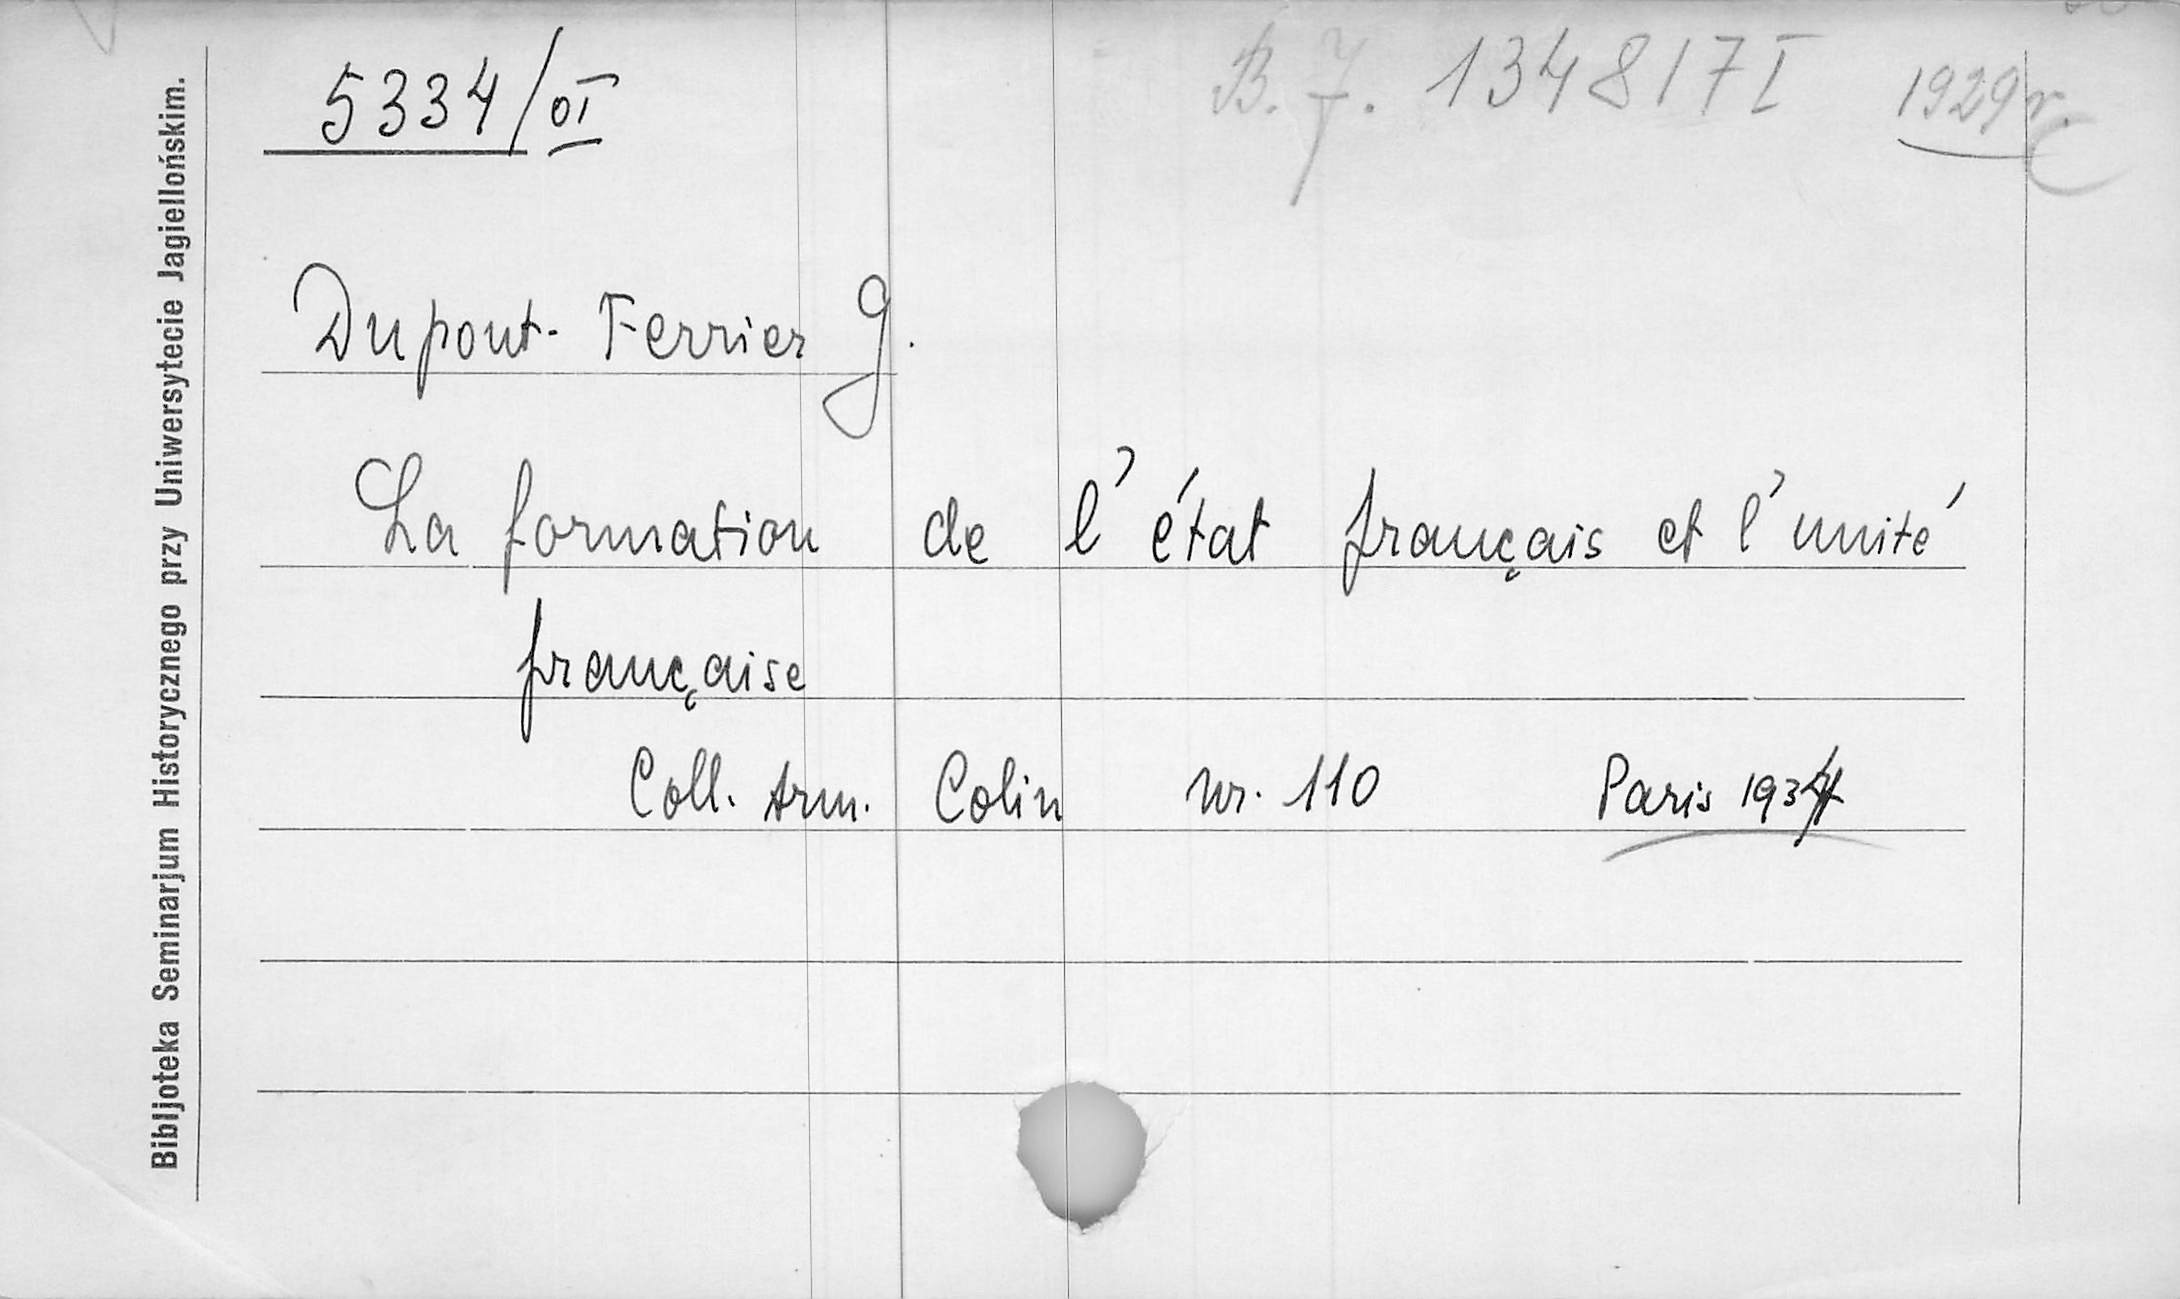 5334/OI
B. J. 134817 I 1929 r.
Dupont-Ferrier G.
La formation de l'état français et l'unité
française
Coll. Arm. Colin nr. 110 Paris 1934
Bibljoteka Seminarjum Historycznego przy Uniwersytecie Jagiellońskim.